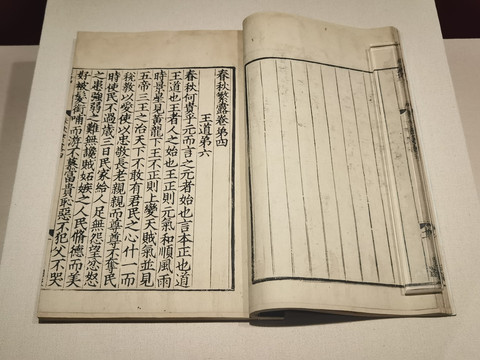 春秋繁露卷第四
王道第六
春秋何貴乎元而言之元者始也言本正也道
王道也王者人之始也王正則元氣和順風雨
時景星見黃龍下王不正則上變天賊氣並見
五帝三王之治天下不敢有君民之心什一而
稅教以愛使以忠敬長老親親而尊尊不奪民
時使民不過歲三日民家給人足無怨望忿怒
之患強弱之難無讒賊妬嫉之人民脩德而美
好被髮銜哺而游不慕富貴恥惡不犯父不哭